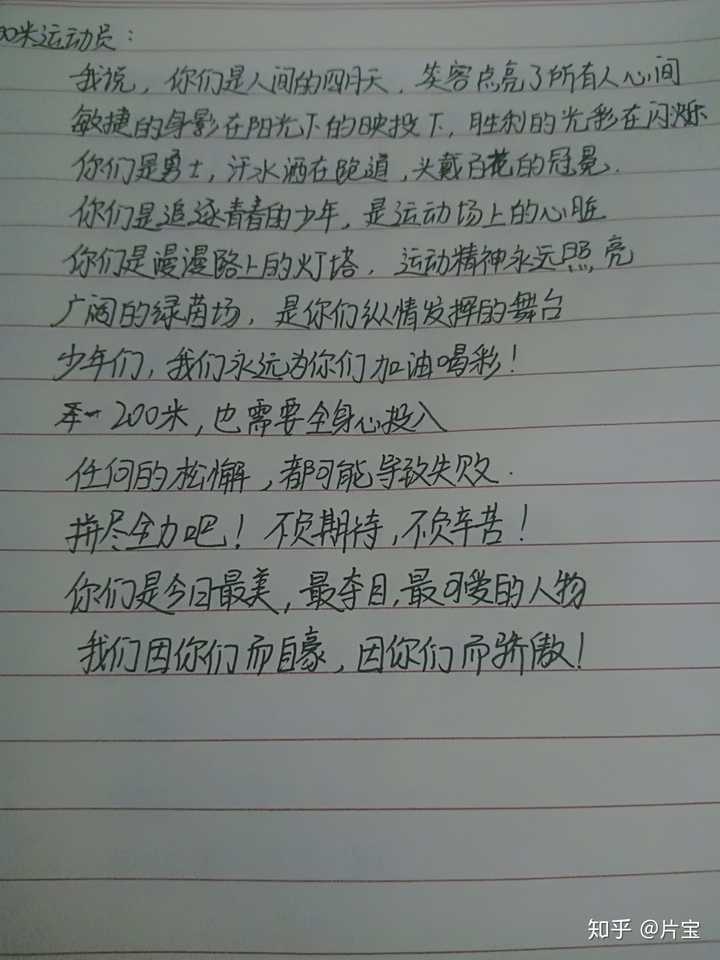 00米运动员：
我说，你们是人间的四月天，笑容点亮了所有人心间
敏捷的身影在阳光下的映投下，胜利的光彩在闪烁
你们是勇士，汗水洒在跑道，头戴百花的冠冕.
你们是追逐青春的少年，是运动场上的心脏
你们是漫漫路上的灯塔，运动精神永远照亮
广阔的绿茵场，是你们纵情发挥的舞台
少年们，我们永远为你们加油喝彩！
200米，也需要全身心投入
任何的松懈，都可能导致失败.
拼尽全力吧！不负期待，不负辛苦！
你们是今日最美，最夺目，最可爱的人物
我们因你们而自豪，因你们而骄傲！
知乎 @片宝